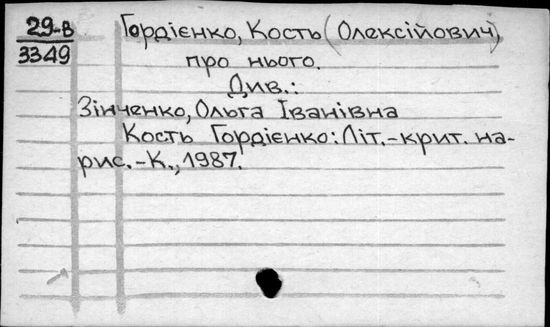 29-в
3349
Гордієнко, Кость (Олексійович)
про нього.
Див.:
Зінченко, Ольга Іванівна
Кость Гордієнко: Літ.-крит. на-
рис. - К., 1987.